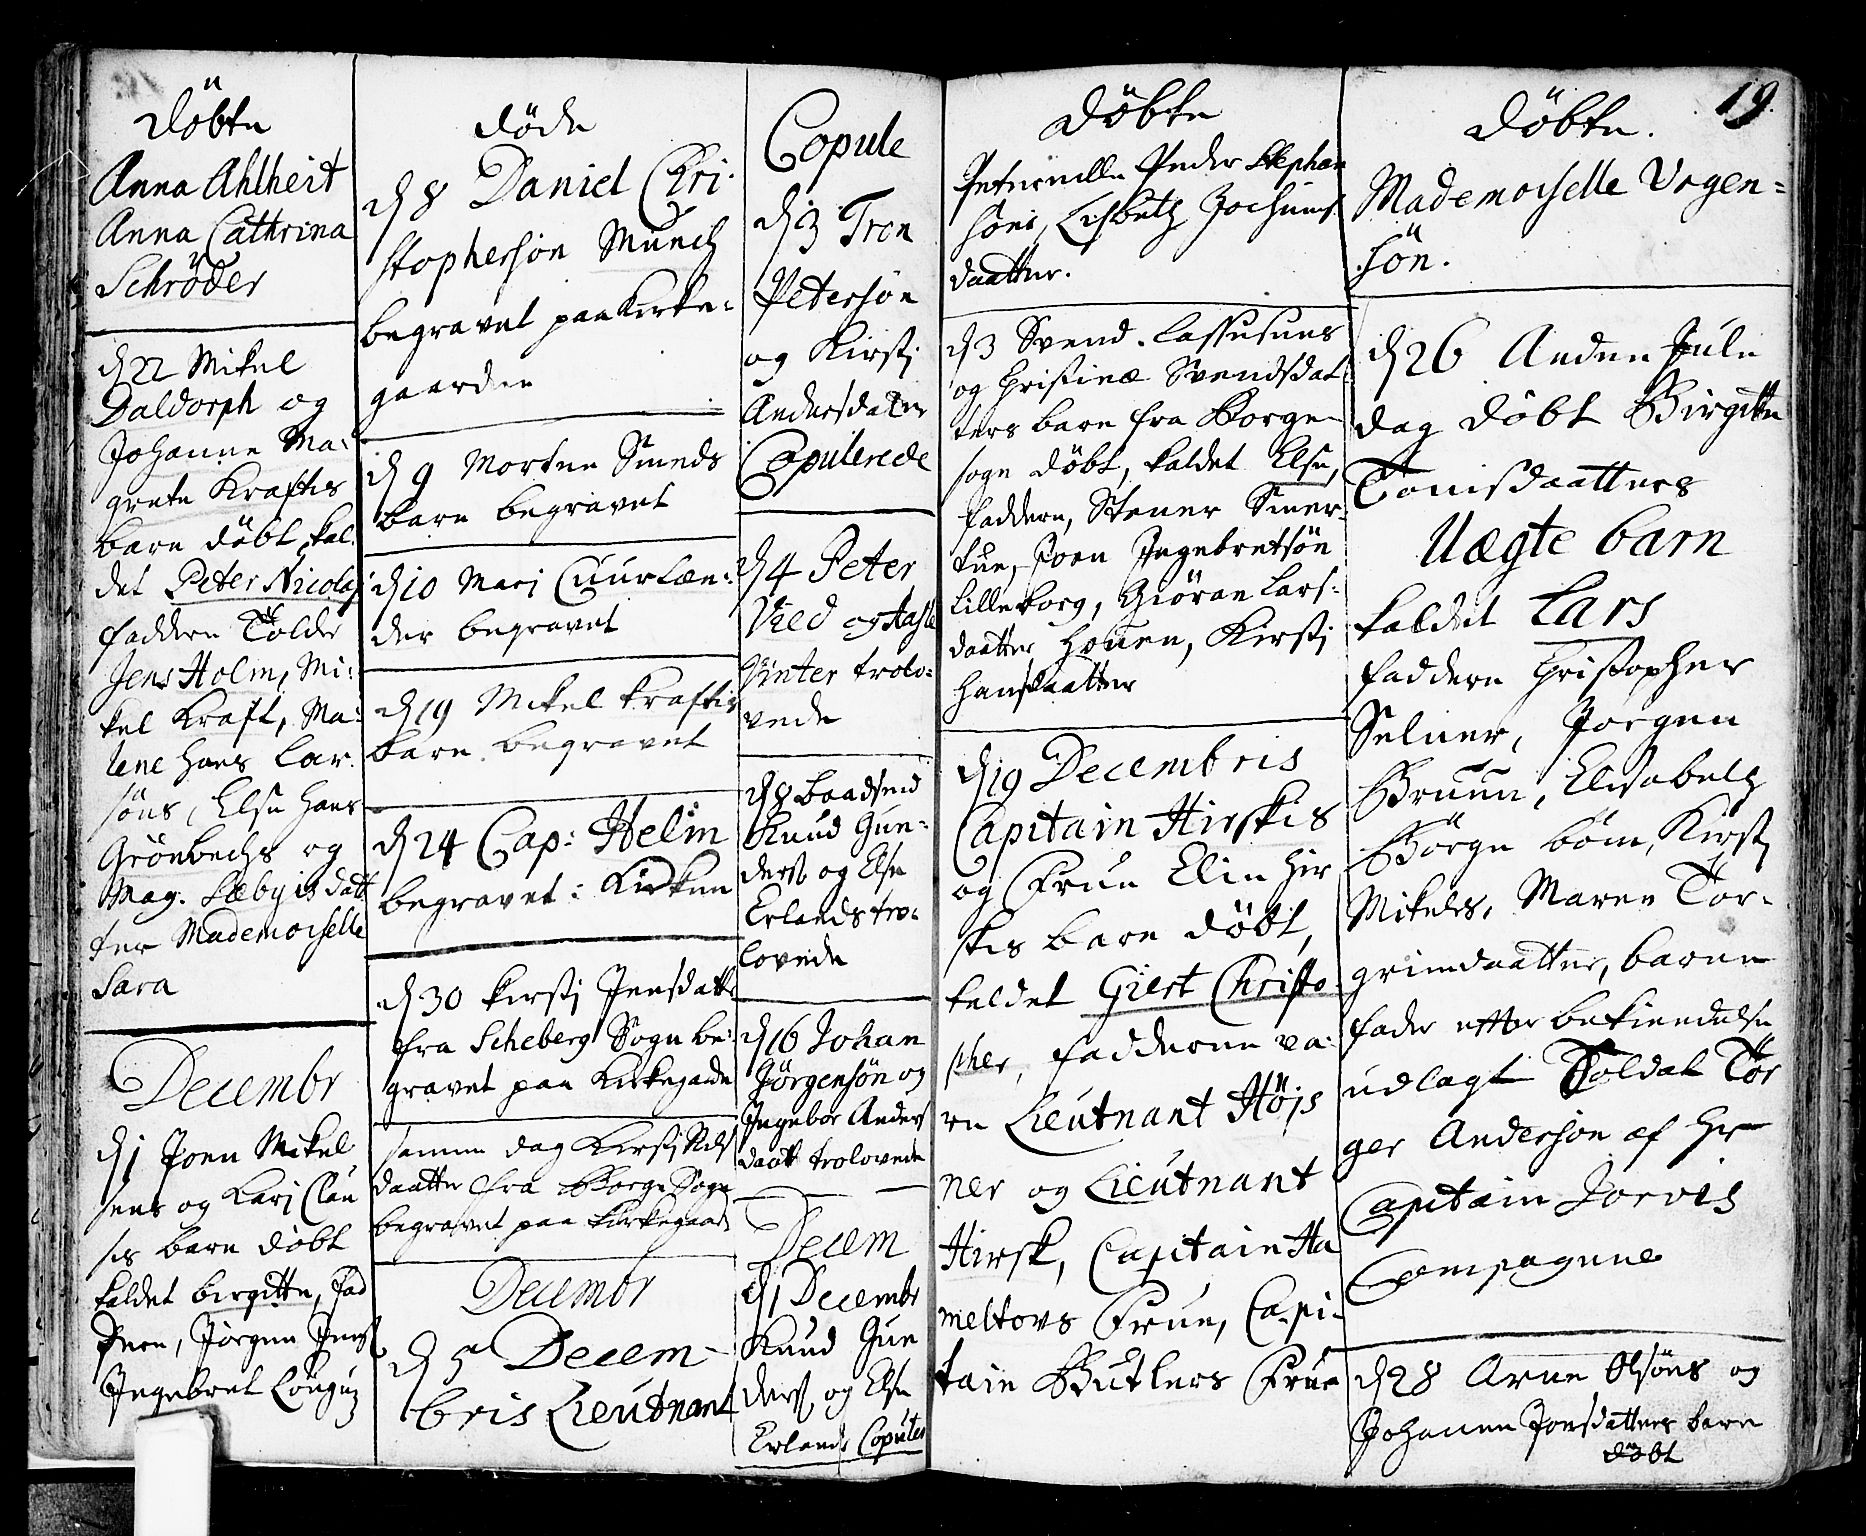 Döbte
Anna Ahlheit
Anna Cathrina
Schröder
d 22 Mikel
Daldorph og
Johanne Ma-
grete Kraftis
barn döbt kal-
det Peter Nicolaj
faddere Tolder
Jens Holm, Mi-
kel Kraft, Ma-
lene Hans Lar-
söns, Else Hans
Grönbechs og
Mag. Læbyis datt
ter Mademoiselle
Sara
Decembr
d 1 Joen Mikel
sens og Kari Clau
sis barn döbt
kaldet birgitte, fad
dere, Jörgen Jens
Ingebret
döde
d 8 Daniel Chri-
stophersön Munch
begravet paa Kirke-
gaarden
d 9 Morten Smeds
barn begravet
d 10 Mari Cuurlæn-
der begravet
d 19 Mikel Kraftis
barn begravet
d 24 Cap: Helm
begravet i Kirken
d 30 Kirsti Jensdatt
fra Scheberg Sogn be-
gravet paa Kirkegaarde
samme dag Kirsti Nils
daatter fra Borge Sogn
begravet paa Kirkegaard
Decembr
d 5 Decem-
bris Lieutnant
Copule
d 3 Tron
Petersön
og Kirsti
Andersdatter
Copulerede
d 4 Peter
Vild og Aasle
Ginter trolo-
vede
d 8 Baadsmd
Knud Gun-
ders og Else
Erlands tro-
lovede
d 16 Johan
Jörgensön og
Ingebor Anders
daatt trolovede
Decem
d 1 Decembr
Knud Gun
ders og Else
Erlands Copuler
Döbte
Peternelle Peder Stephan
söns, Lisbeth Jochums
daatter.
d 3 Svend Lassesuns
og Christinæ Svendsdat
ters barn fra Borge
sogn döbt, kaldet Else,
faddere, Stener Smer-
kue, Joen Ingebretsön
Lilleborg, Giöran Lars-
daatter Houen, Kirsti
Hansdaatter
d 19 Decembris
Capitain Hirskis
og Frue Elin Hir
skis barn döbt,
kaldet Giert Christo
pher, fadderne va-
re Lieutnant Höjs
ner og Lieutnant
Hirsk, Capitain Ha
meltovs Frue, Capi-
tain Butlers Frue
19.
Döbte.
Mademoiselle Vogen-
sön.
d 26 Anden Jule
dag döbt Birgitte
Tonisdaatters
Uægte barn
kaldet Lars
faddere Christopher
Selner, Jörgen
Bruun, Elisabeth
Börge böm, Kirsti
Mikels, Maren Tor-
grimdaatter, barne
fader efter bekiendelse
udlagt Soldat Tor
ger Andersön af Hr
Capitain Jorvis
Compagnie
d 28 Arne Olsöns og
Johanne Jonsdatters barn
döbt